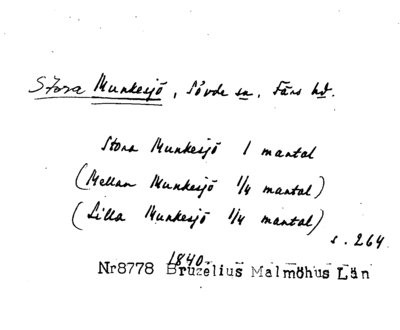 Stora Munkesjö, Sövde sn. Färs hd.
Stora Munkesjö 1 mantal
(Mellan Munkesjö 1/4 mantal)
(Lilla Munkesjö 1/4 mantal)
s. 264
1840
Nr8778 Bruzelius Malmöhus Län